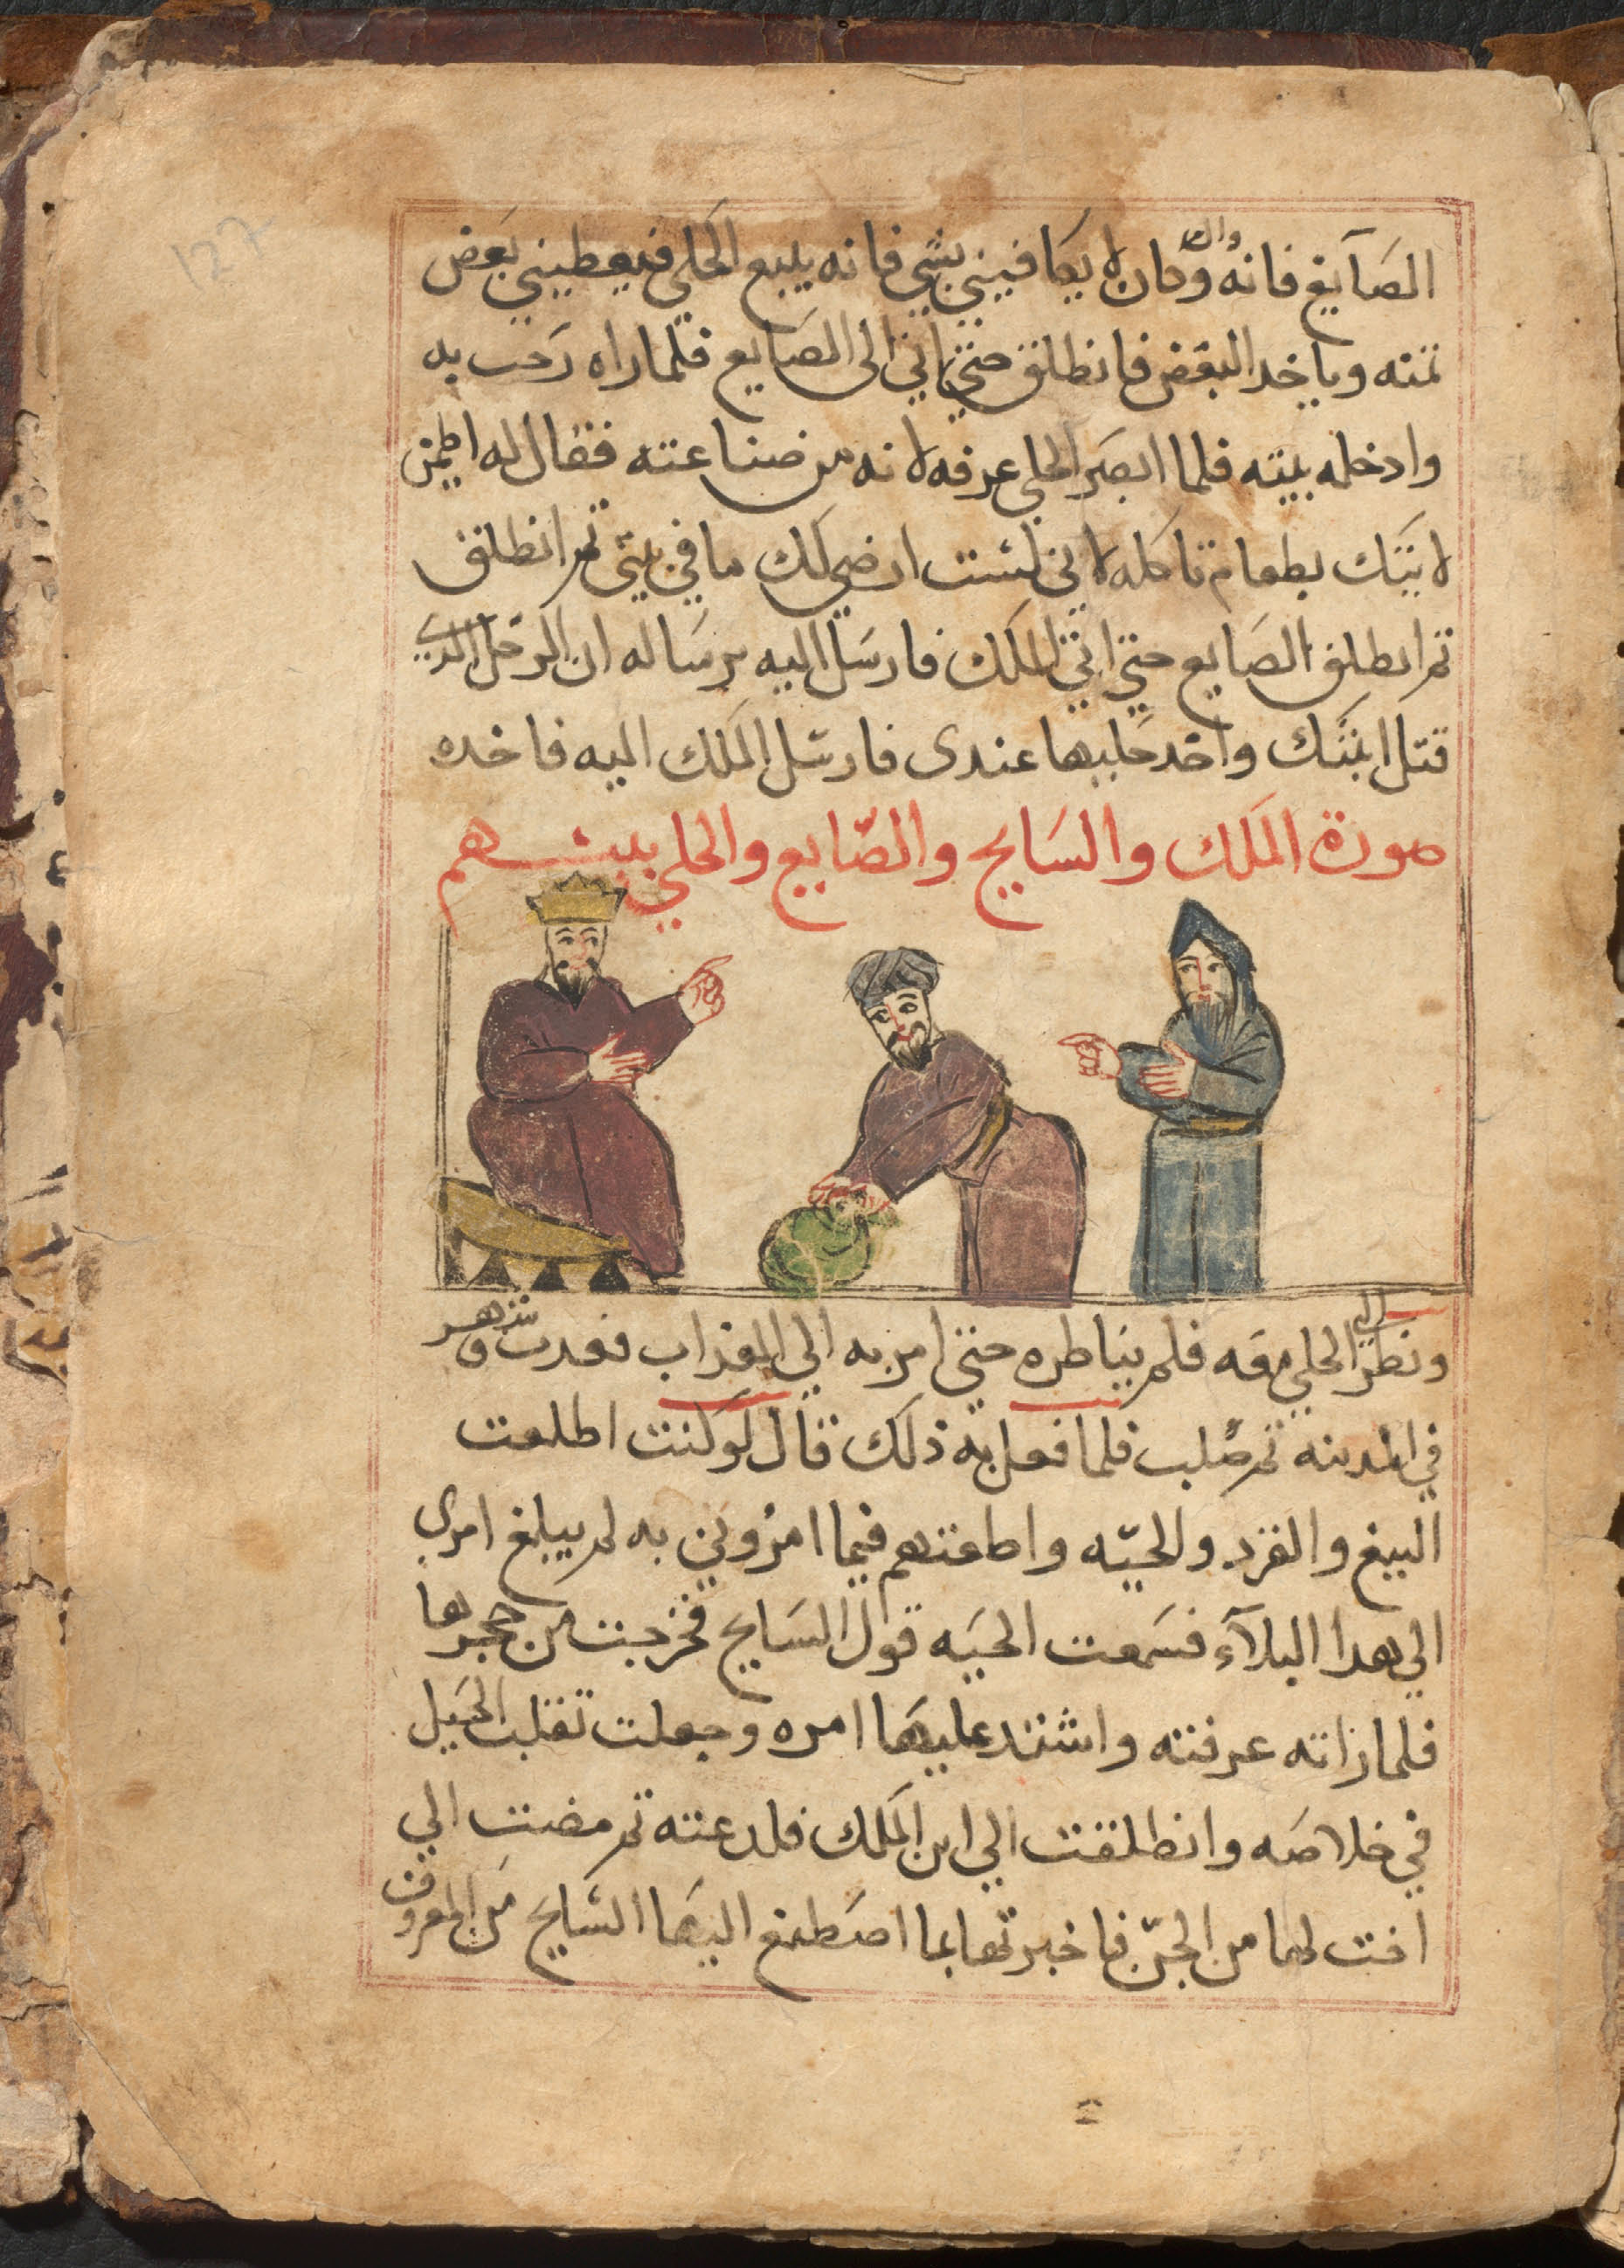 127
الصَايغ فانه وان كان لا يكافيني بشي فانه يبيع الحَلي فيعطيني بَعض
تمنه وياخد البعَض فانطلق حتي اتي الى الصَايع فلما راه رَحب به
وادخله بيته فلما ابصَر الحلي عرفه لانه من صناعته فقال له اطمين
لاتيَك بطعام تاكله لاني لست ارضي لك ما في بيتي تم انطلق
تم انطلق الصَايع حتي اتي الملَك فارسَل اليه برسَاله ان الرجل الدي
قتل ابنتَك واخد حَليها عندى فارسَل المَلك اليه فاخده
صورة المَلك والسَايح والصَّايع والحلي بينهم
ونظر الى الحلي معَه فلم يناطره حتي امر به الي العداب فعدب وشهر
في المدينه تم صُلب فلما فعل به ذلك قال لو كنت اطلعت
الببغ والقرد والحيّه واطعتهم فيما امروني به لم يبلغ امري
الي هدا البلآء فسَمعت الحيَه قول السَايح فخرجت من حجرها
فلما راته عرفته واشتد عليهَا امره وجعلت تقلب الحَيل
في خلاصَه وانطلقت الي ابن المَلك فلدعته تم مضت الي
اخت لها من الجنّ فاخبرتها بما اصَطنع اليهَا السَايح مَن المعروف